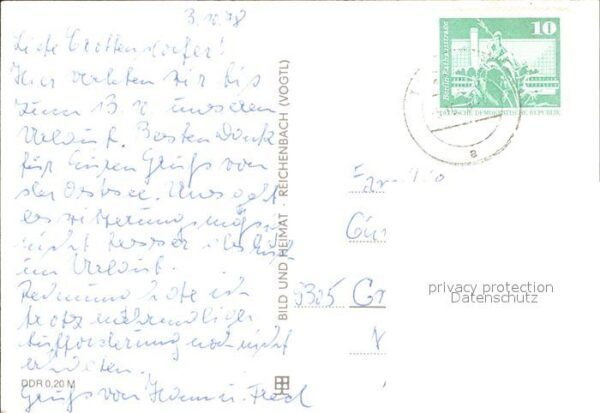 3.10.78
Liebe Crottendorfer!
Hier verleben wir bis
zum 13. X unseren
Urlaub. Besten Dank
für Euren Gruß von
der Ostsee. Uns geht
es witterungsmäßig
nicht besser als Euch
im Urlaub.
Rechnung habe ich
trotz mehrmaliger
Aufforderung noch nicht
erhalten.
Gruß von u. Fred
DDR 0,20 M
BILD UND HEIMAT · REICHENBACH (VOGTL)
10
Berlin, Rathausstraße
DEUTSCHE DEMOKRATISCHE REPUBLIK
a
Familie
Gün
9305 Cr
privacy protection
Datenschutz